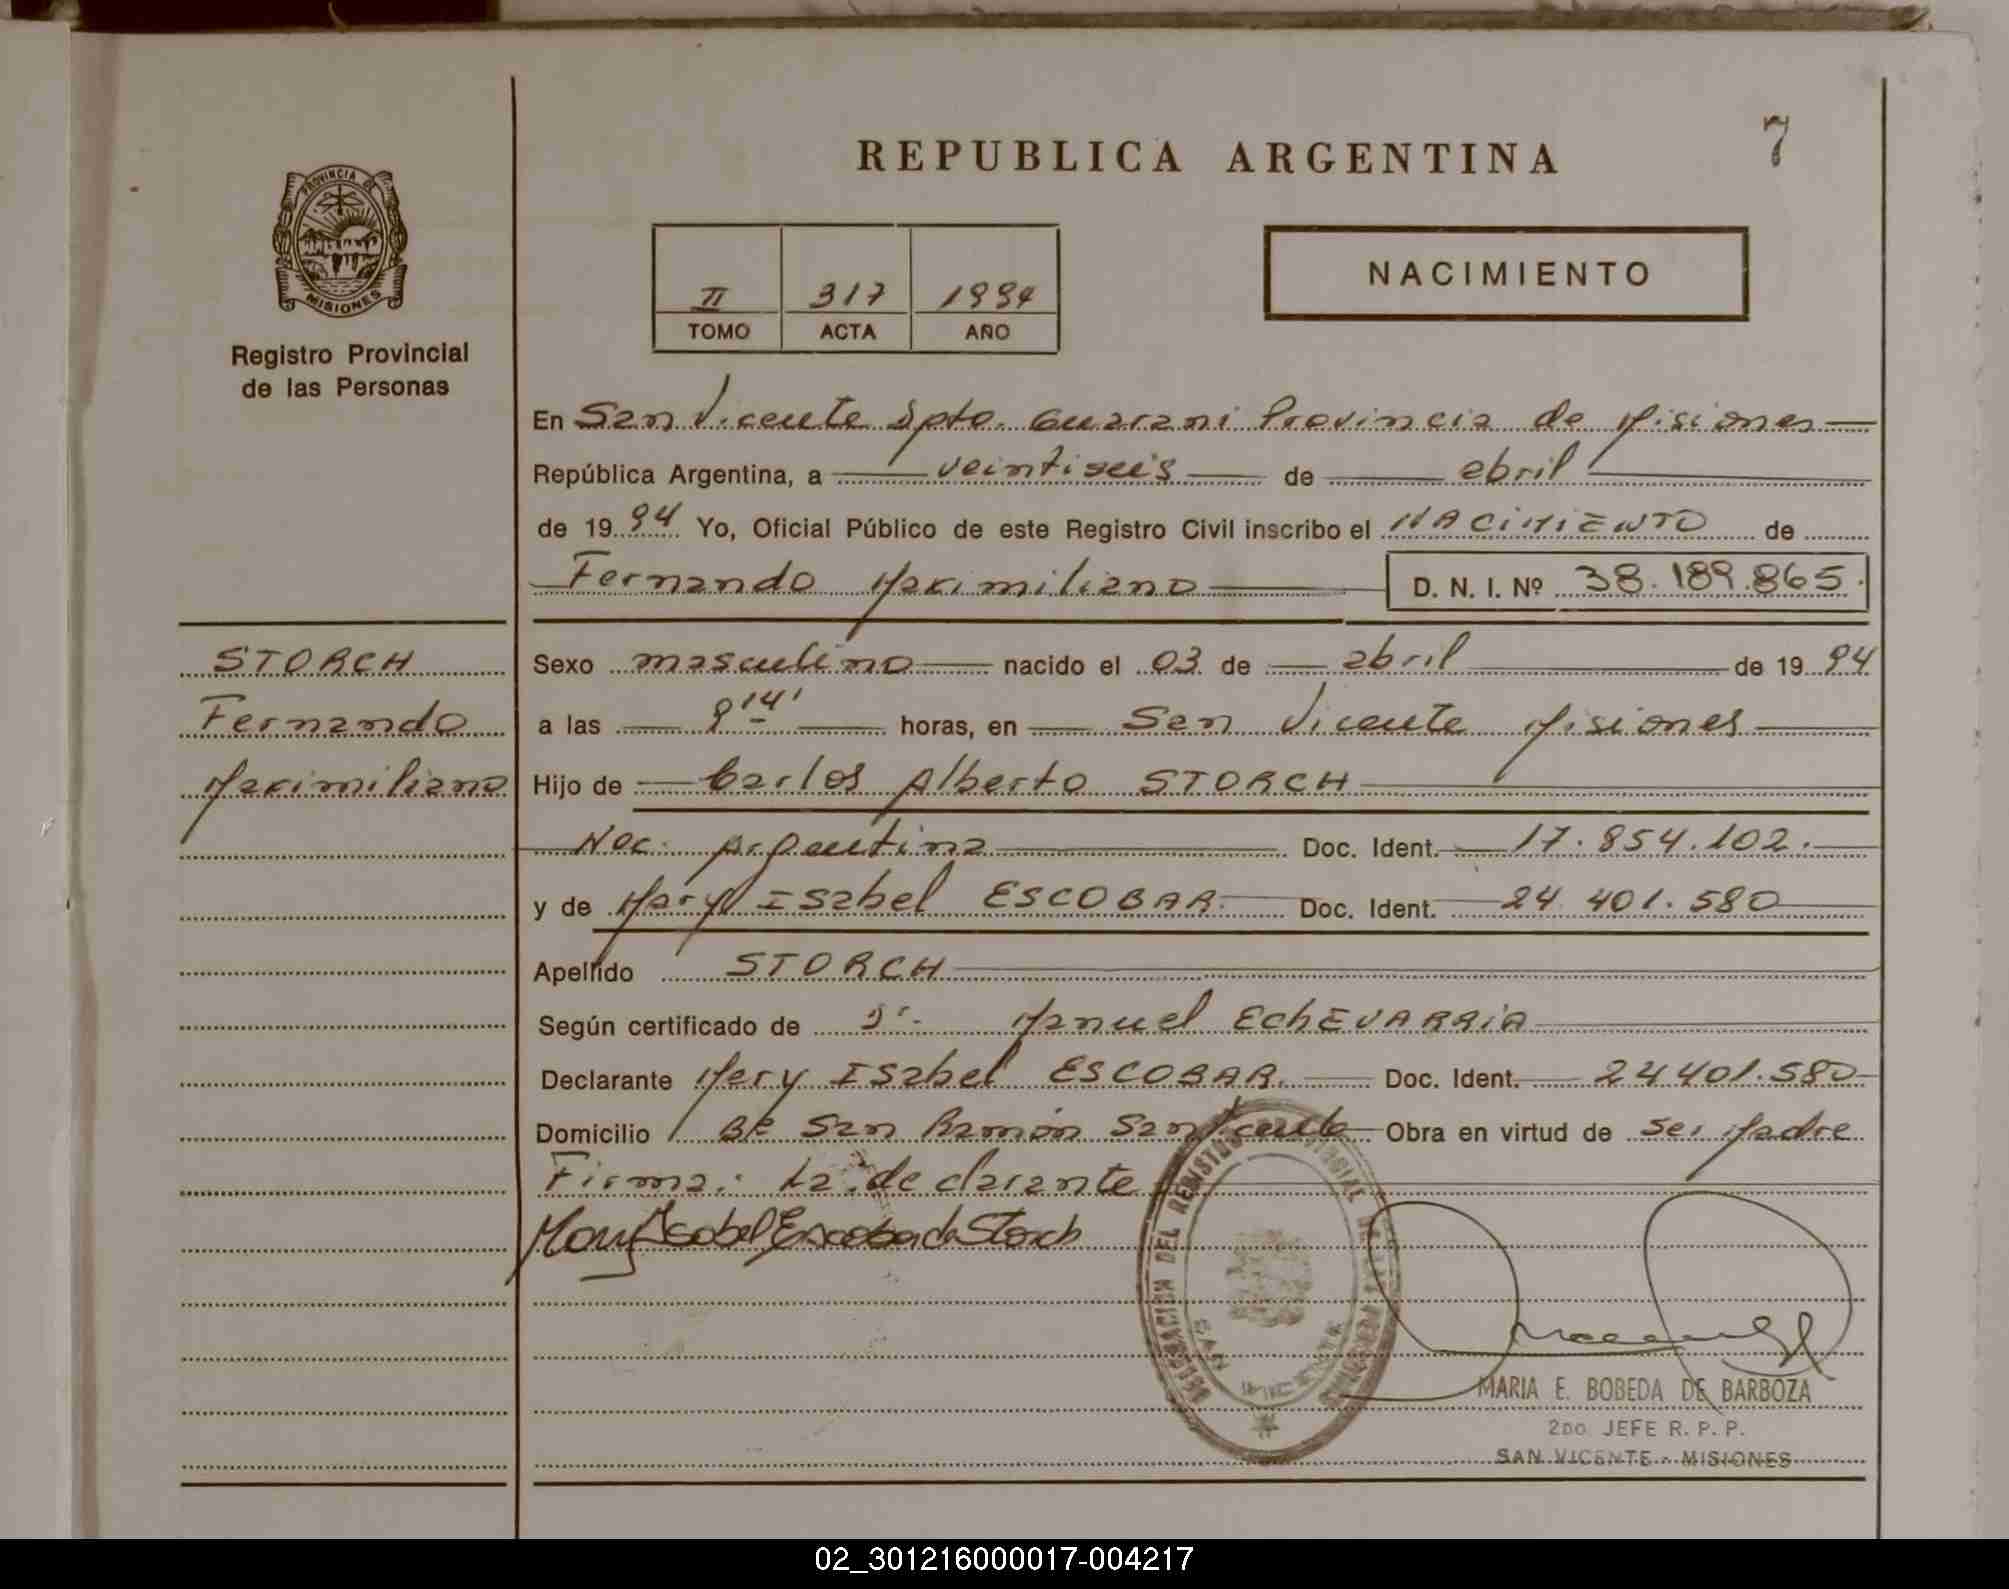 7
REPUBLICA ARGENTINA
PROVINCIA DE
MISIONES
Registro Provincial
de las Personas
II 317 1994
TOMO ACTA AÑO
NACIMIENTO
En San Vicente Dpto. Guarani Provincia de Misiones
República Argentina, a veintiseis de abril
de 1994 Yo, Oficial Público de este Registro Civil inscribo el NACIMIENTO de
Fernando Maximiliano D. N. I. Nº 38.189.865.
STORCH
Fernando
Maximiliano
Sexo masculino nacido el 03 de abril de 1994
a las 9 14' horas, en San Vicente Misiones
Hijo de Carlos Alberto STORCH
Nac. Argentina Doc. Ident. 17.854.102.
y de Mary Isabel ESCOBAR Doc. Ident. 24 401.580
Apellido STORCH
Según certificado de Dr. Manuel EchEVARRiA
Declarante Mery Isabel ESCOBAR. Doc. Ident. 24 401.580
Domicilio Bº San Ramón San Vicente Obra en virtud de ser Madre
Firma: La declarante
Mary Isabel Escobar de Storch
DELEGACION DEL REGISTRO PROVINCIAL DE LAS PERSONAS
SAN VICENTE
MARIA E. BOBEDA DE BARBOZA
2DO JEFE R. P. P.
SAN VICENTE - MISIONES
02_301216000017-004217